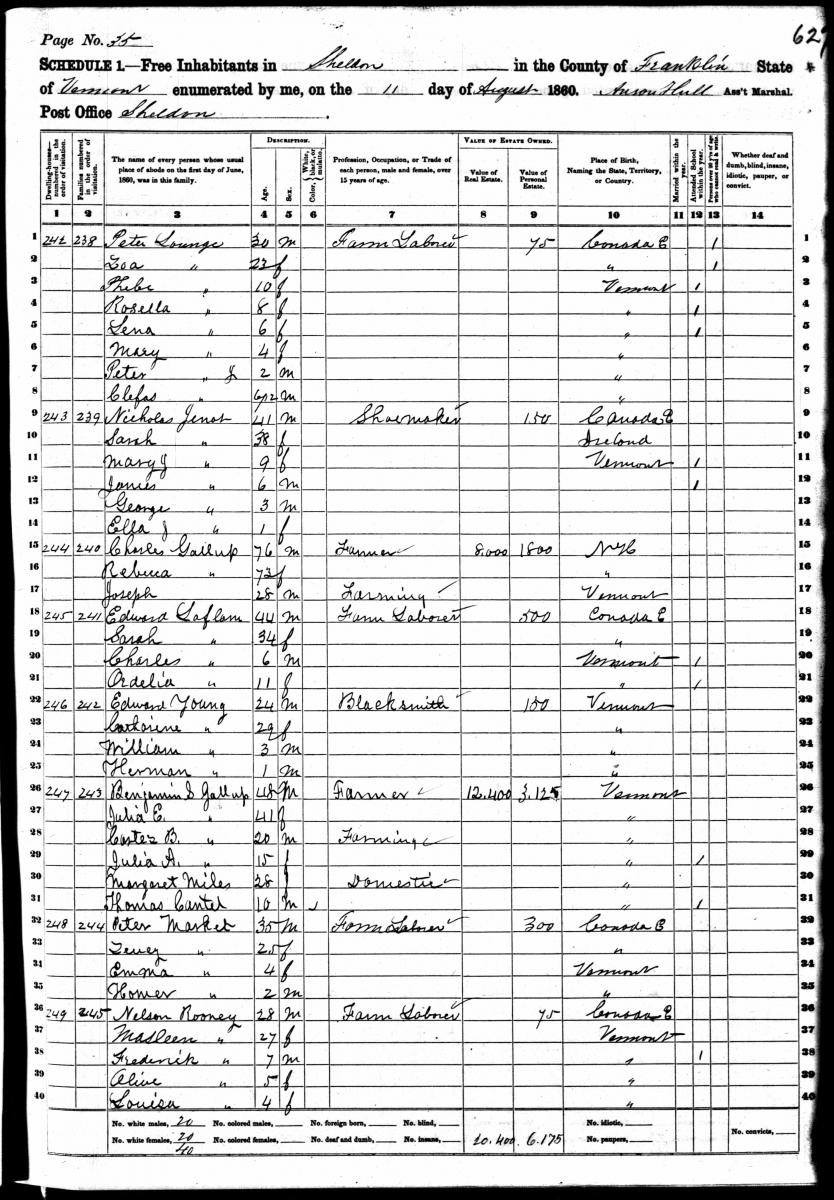 Page No. 35
627
SCHEDULE 1.—Free Inhabitants in Sheldon in the County of Franklin State
of Vermont enumerated by me, on the 11 day of August 1860. Anson Hull Ass't Marshal.
Post Office Sheldon
Dwelling-houses numbered in the order of visitation. Families numbered in the order of visitation. The name of every person whose usual place of abode on the first day of June, 1860, was in this family. DESCRIPTION. Age. Sex. Color, White, black, or mulatto. Profession, Occupation, or Trade of each person, male and female, over 15 years of age. VALUE OF ESTATE OWNED. Value of Real Estate. Value of Personal Estate. Place of Birth, Naming the State, Territory, or Country. Married within the year. Attended School within the year. Persons over 20 y'rs of age who cannot read & write. Whether deaf and dumb, blind, insane, idiotic, pauper, or convict.
1 2 3 4 5 6 7 8 9 10 11 12 13 14
1 242 238 Peter Lounge 30 m Farm Laborer 75 Canada E 1 1
2 Zoa " 23 f " 1 2
3 Phebe " 10 f Vermont 1 3
4 Rosella " 8 f " 1 4
5 Lena " 6 f " 1 5
6 Mary " 4 f " 6
7 Peter " J 2 m " 7
8 Clefas " 6/12 m " 8
9 243 239 Nicholas Jenot 41 m Shoemaker 150 Canada E 9
10 Sarah " 38 f Ireland 10
11 Mary J " 9 f Vermont 1 11
12 James " 6 m 1 12
13 George " 3 m 13
14 Ella J " 1 f 14
15 244 240 Charles Gallup 76 m Farmer 8.000 1800 N H 15
16 Rebecca " 73 f " 16
17 Joseph 28 m Farming Vermont 17
18 245 241 Edward Laflam 44 m Farm Laborer 500 Canada E 18
19 Sarah " 34 f " 19
20 Charles " 6 m Vermont 1 20
21 Ordelia " 11 f " 1 21
22 246 242 Edward Young 24 m Blacksmith 150 Vermont 22
23 Catharine " 29 f " 23
24 William " 3 m " 24
25 Herman " 1 m " 25
26 247 243 Benjamin S Gallup 48 M Farmer 12.400 3.125 Vermont 26
27 Julia E. " 41 f " 27
28 B. " 20 m Farming " 28
29 Julia A. " 15 f " 1 29
30 Margaret Miles 28 f Domestic " 30
31 Thomas Cantel 10 m " 1 31
32 248 244 Peter Market 35 M Farm Laborer 300 Canada E 32
33 " 25 f " 33
31 Emma " 4 f Vermont 34
35 Homer " 2 m " 35
36 249 245 Nelson Rooney 28 M Farm Laborer 75 Canada E 36
37 " 27 f Vermont 37
38 Frederick " 7 m " 1 38
39 Olive " 5 f " 39
40 Louisa " 4 f " 40
No. white males, 20 No. colored males, No. foreign born, No. blind, No. idiotic,
No. white females, 20 No. colored females, No. deaf and dumb, No. insane, 20.400 6.175 No. paupers, No. convicts,
40